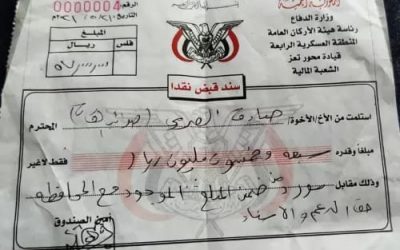 0000004
وزارة الدفاع
رئاسة هيئة الأركان العامة
المنطقة العسكرية الرابعة
قيادة محور تعز
الشعبة المالية
الرقم
التاريخ
المبلغ
ريـــال
فلس
سند قبض نقدا
استلمت من الأخ/الأخوة: صادق
المحترم
مبلغاً وقدره سبعة وخمسون مليون ريال
فقط لاغير
وذلك مقابل من ضمن المبلغ الموجود مع المحافظة
حق الدعم والاسناد
أمين الصندوق